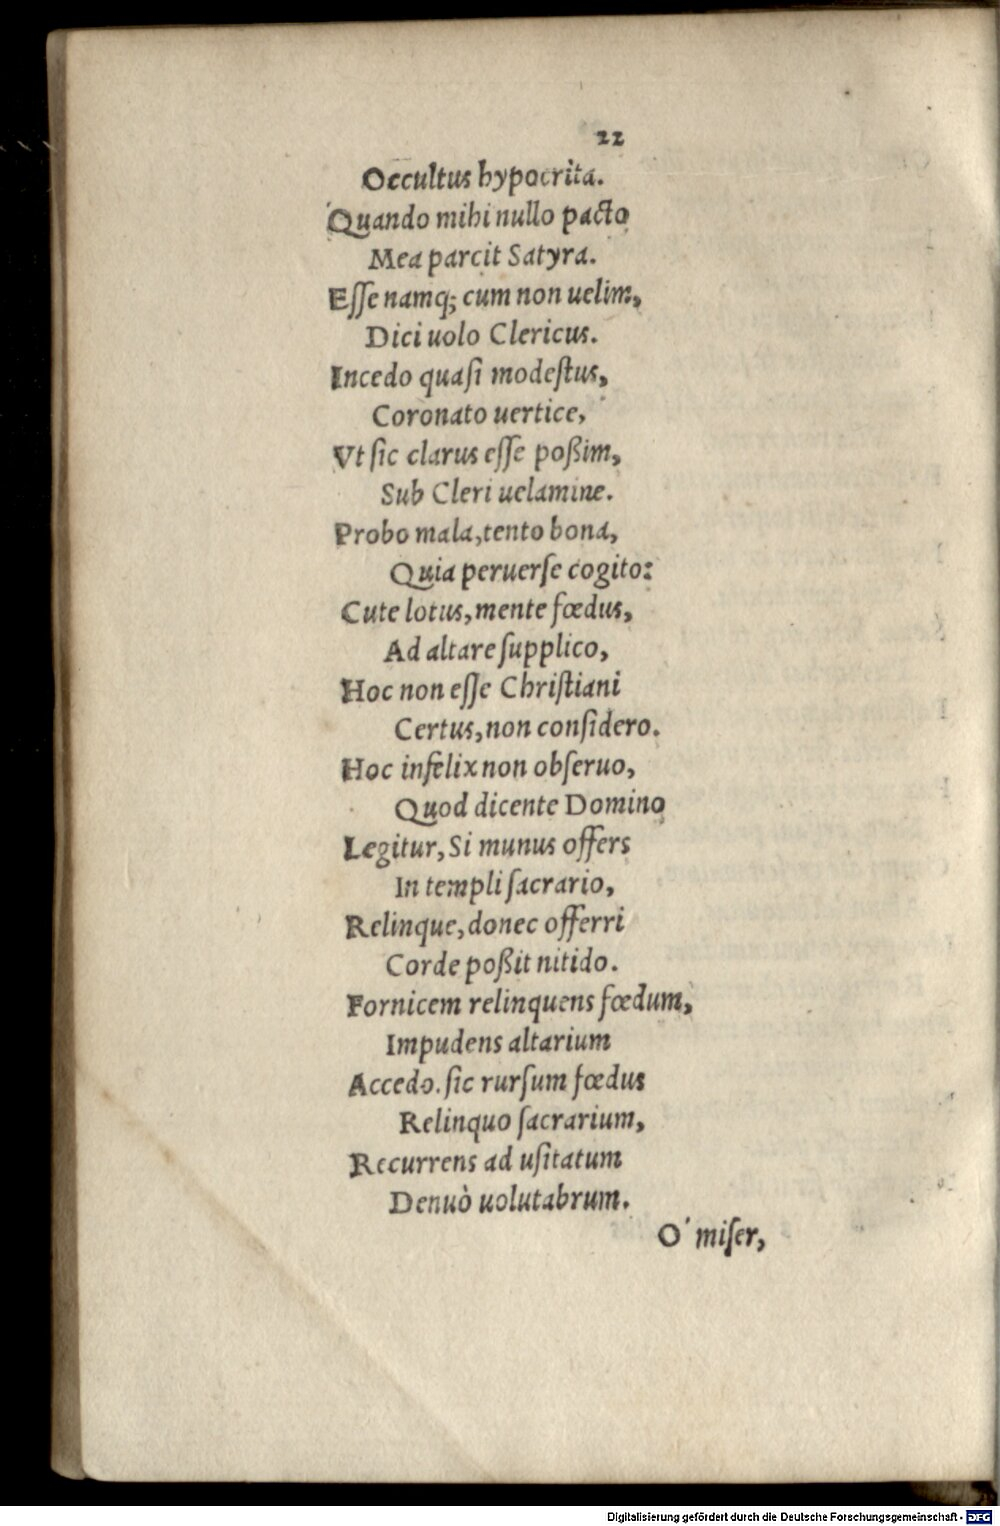 22
Occultus hypocrita.
Quando mihi nullo pacto
Mea parcit Satyra.
Eſſe namq; cum non uelim,
Dici uolo Clericus.
Incedo quaſi modeſtus,
Coronato uertice,
Vt ſic clarus eſſe poßim,
Sub Cleri uelamine.
Probo mala, tento bona,
Quia peruerſe cogito:
Cute lotus, mente fœdus,
Ad altare ſupplico,
Hoc non eſſe Chriſtiani
Certus, non conſidero.
Hoc infelix non obſeruo,
Quod dicente Domino
Legitur, Si munus offers
In templi ſacrario,
Relinque, donec offerri
Corde poßit nitido.
Fornicem relinquens fœdum,
Impudens altarium
Accedo. ſic rurſum fœdus
Relinquo ſacrarium,
Recurrens ad uſitatum
Denuò uolutabrum.
O' miſer,
Digitalisierung gefördert durch die Deutsche Forschungsgemeinschaft - DFG